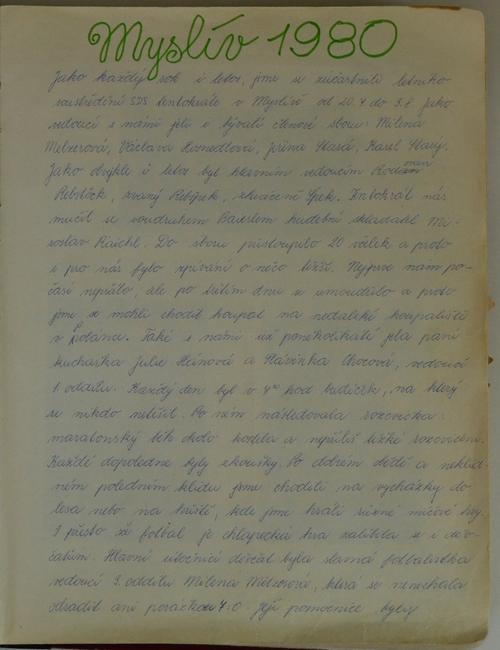 Myslív 1980
Jako každý rok i letos, jsme se zúčastnili letního
soustředění SDS tentokráte v Myslívě od 20.7 do 3.8. Jako
vedoucí s námi jeli i bývalí členové sboru: Milena
Melzerová, Václava Hosnedlová, Jiřina Stará, Karel Starý.
Jako obvykle i letos byl hlavním vedoucím Roman
zvaný zkráceně Špek. Tentokrát nás
mučil se soudruhem hudební skladatel Mi-
roslav Raichl. Do sboru přistoupilo 20 válek a proto
i pro nás bylo zpívání o něco těžší. Nejprve nám po-
časí nepřálo, ale po třetím dnu se umoudřilo a proto
jsme se mohli chodit koupat na nedaleké koupaliště
v Také s námi už poněkolikáté jela paní
kuchařka Julie Hánová a Slávinka vedoucí
1. oddílu. Každý den byl v 7⁰⁰ hod budíček, na který
se nikdo netěšil. Po něm následovala rozcvička:
maratonský běh okolo hotelu a nepříliš těžké rozcvičení.
Každé dopoledne byly zkoušky. Po dobrém obědě a neklid-
ném poledním klidu jsme chodili na vycházky do
lesa nebo na hřiště, kde jsme hráli různé míčové hry.
I přesto že fotbal je chlapecká hra zalíbila se i děv-
čatům. Hlavní útočnicí děvčat byla slavná fotbalistka
vedoucí 3. oddílu Milena Melzerová, která se nenechala
odradit ani porážkou 4:0. Její pomocnice byly